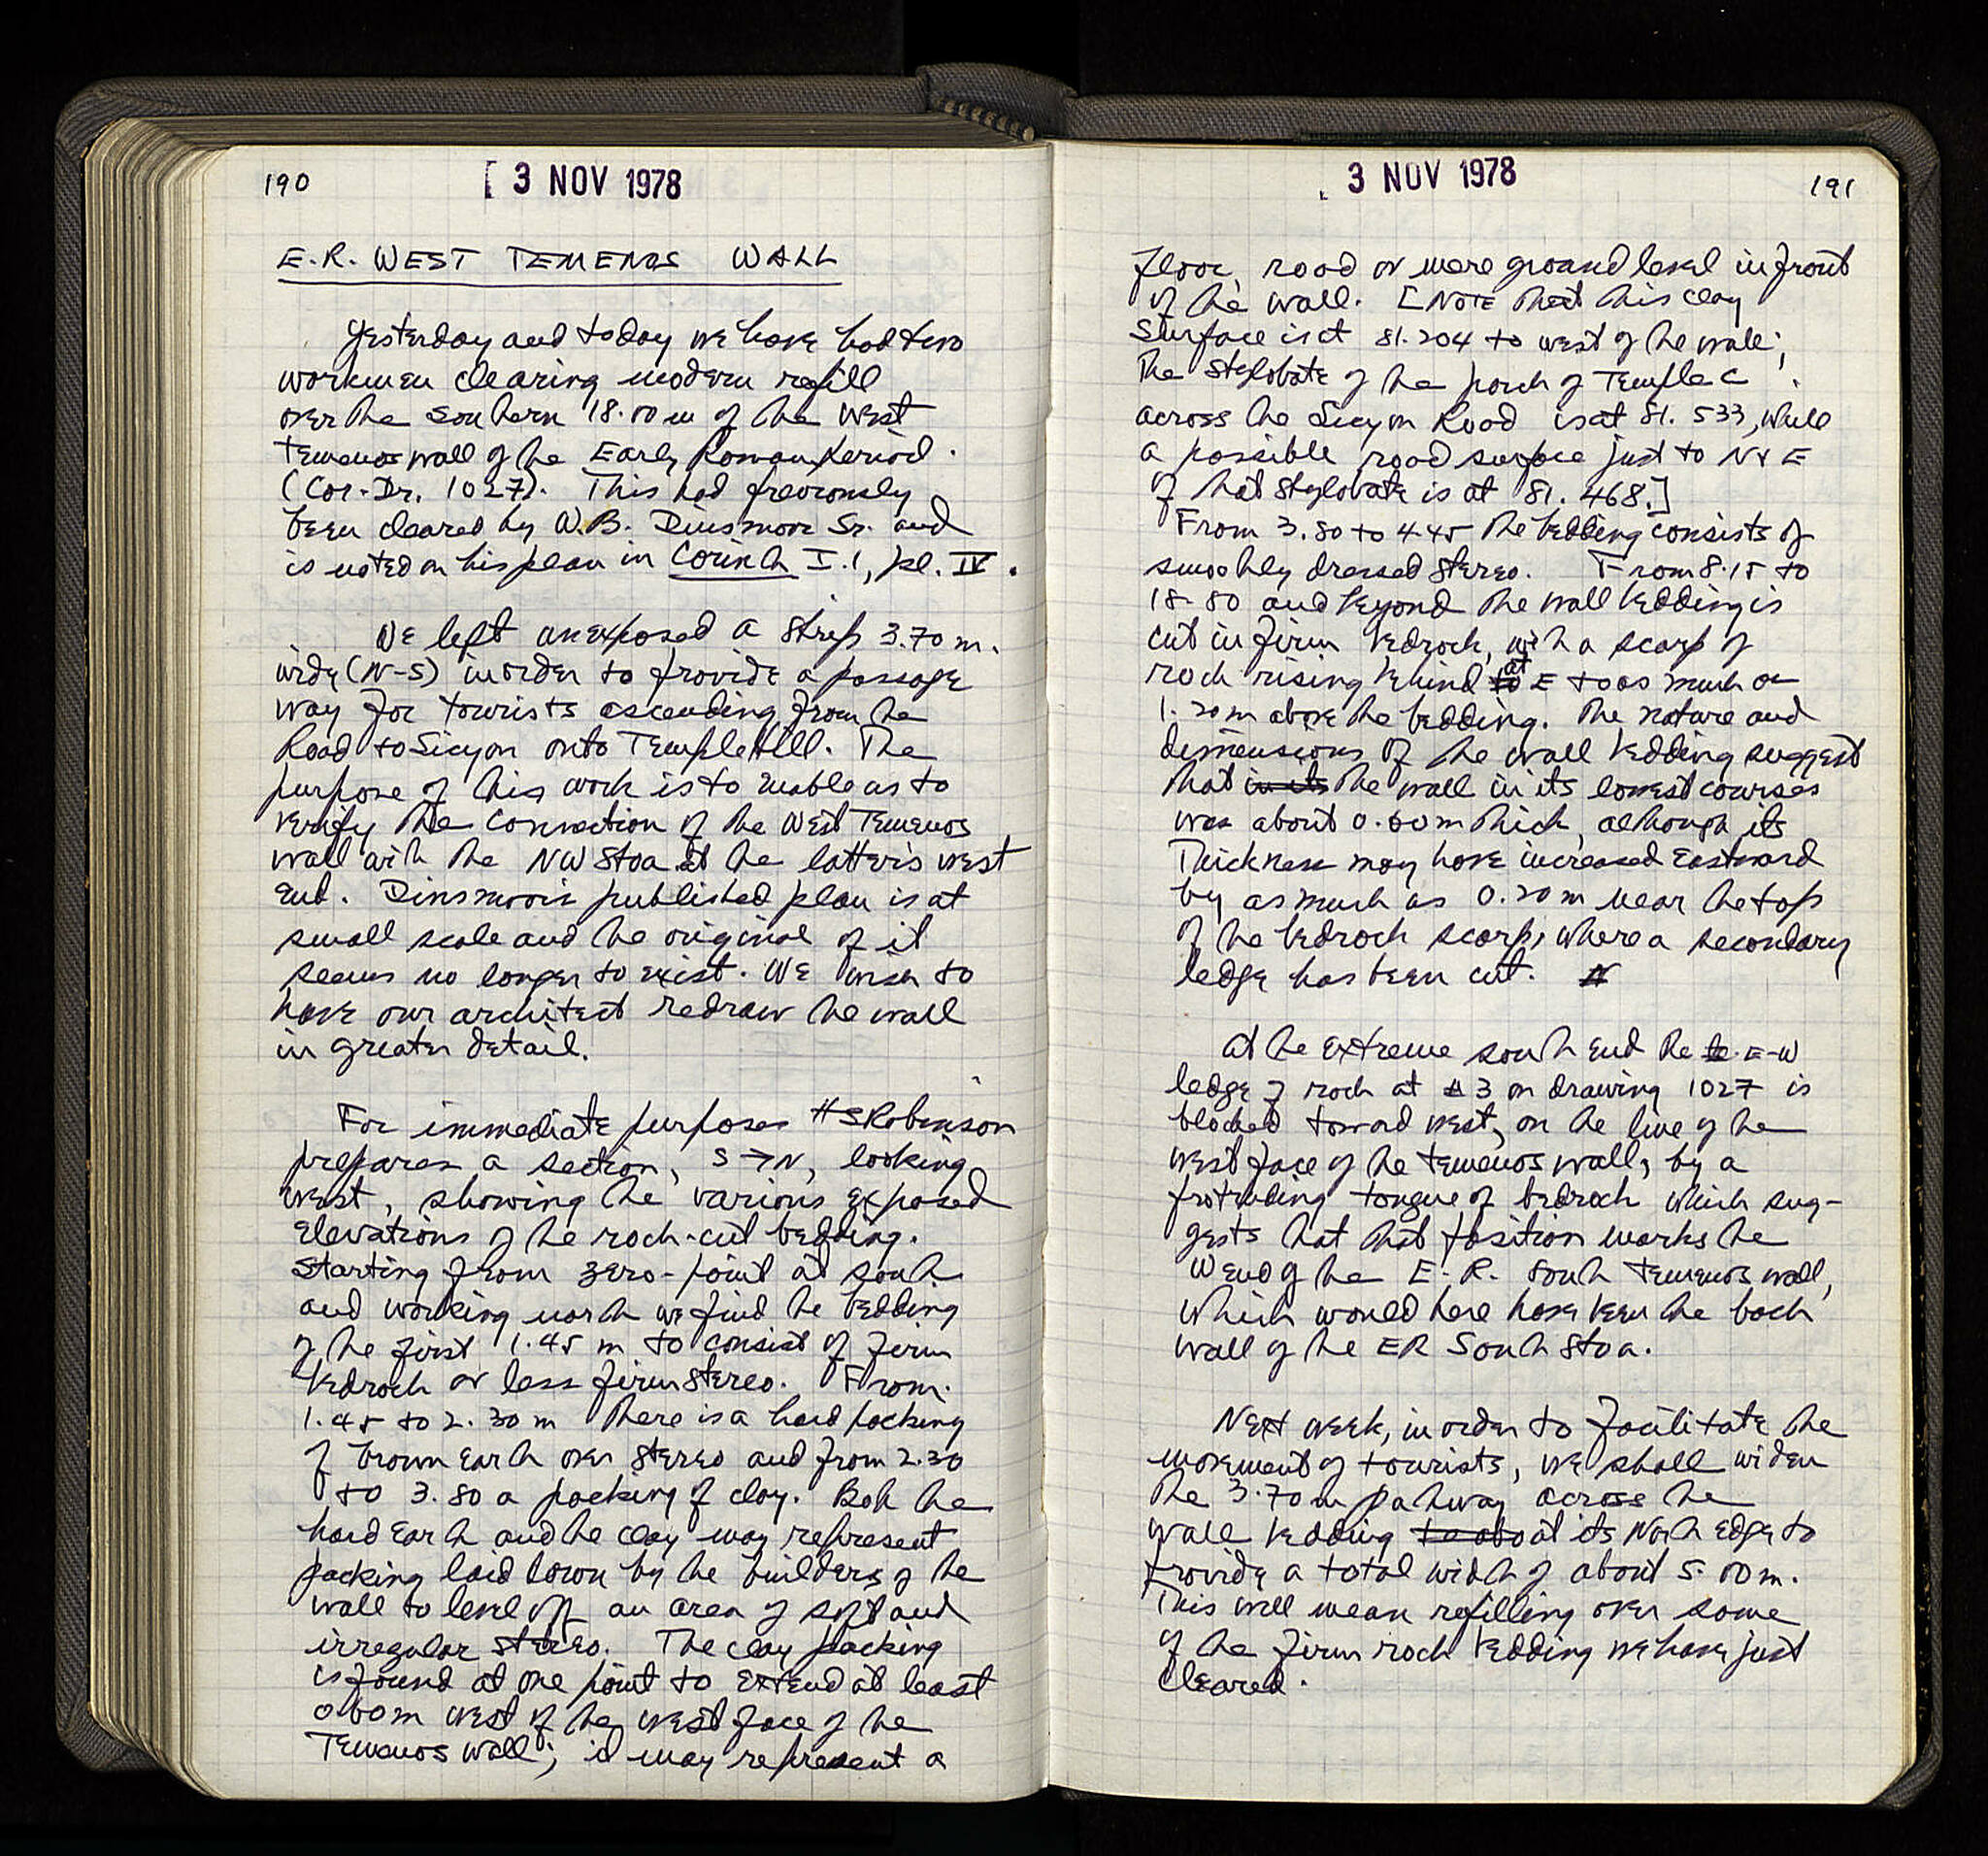 190
3 NOV 1978
E.R. WEST TEMENOS WALL
Yesterday and today we have had two
workmen clearing modern refill
over the southern 18.00 m of the West
Temenos wall of the Early Roman period.
(Cor. Dr. 1027). This had previously
been cleared by W.B. Dinsmoor Sr. and
is noted on his plan in Corinth I.1, pl. IV.
We left unexposed a strip 3.70 m.
wide (N-S) in order to provide a passage
way for tourists ascending from the
Road to Sicyon onto Temple Hill. The
purpose of this work is to enable us to
verify the connection of the West Temenos
wall with the NW Stoa at the latter's west
end. Dinsmoor's published plan is at
small scale and the original of it
seems no longer to exist. We wish to
have our architect redraw the wall
in greater detail.
For immediate purposes HSRobinson
prepares a section, S→N, looking
west, showing the various exposed
elevations of the rock-cut bedding.
Starting from zero-point at south
and working north we find the bedding
of the first 1.45 m to consist of firm
bedrock or less firm stereo. From
1.45 to 2.30 m there is a hard packing
of brown earth over stereo and from 2.30
to 3.80 a packing of clay. Both the
hard earth and the clay may represent
packing laid down by the builders of the
wall to level off an area of soft and
irregular stereo. The clay packing
is found at one point to extend at least
0.60m west of the west face of the
Temenos wall; it may represent a
3 NOV 1978
191
floor, road or mere ground level in front
of the wall. [NOTE that this clay
surface is at 81.204 to west of the wall;
the stylobate of the porch of Temple C
across the Sicyon Road is at 81.533, while
a possible road surface just to N & E
of that stylobate is at 81.468.]
From 3.80 to 4.45 the bedding consists of
smoothly dressed stereo. From 8.15 to
18.80 and beyond the wall bedding is
cut in firm bedrock, with a scarp of
rock rising behind to at E to as much as
1.20m above the bedding. The nature and
dimensions of the wall bedding suggest
that in its the wall in its lowest courses
was about 0.60m thick, although its
thickness may have increased eastward
by as much as 0.20 m near the top
of the bedrock scarp, where a secondary
ledge has been cut. N
At the extreme south end the E-W
ledge of rock at #3 on drawing 1027 is
blocked toward west, on the line of the
west face of the temenos wall, by a
protruding tongue of bedrock which sug-
gests that that position marks the
W end of the E.R. South temenos wall,
which would here have been the back
wall of the ER South Stoa.
Next week, in order to facilitate the
movement of tourists, we shall widen
the 3.70 m pathway across the
wall bedding to abo at its North edge to
provide a total width of about 5.00m.
This will mean refilling over some
of the firm rock bedding we have just
cleared.